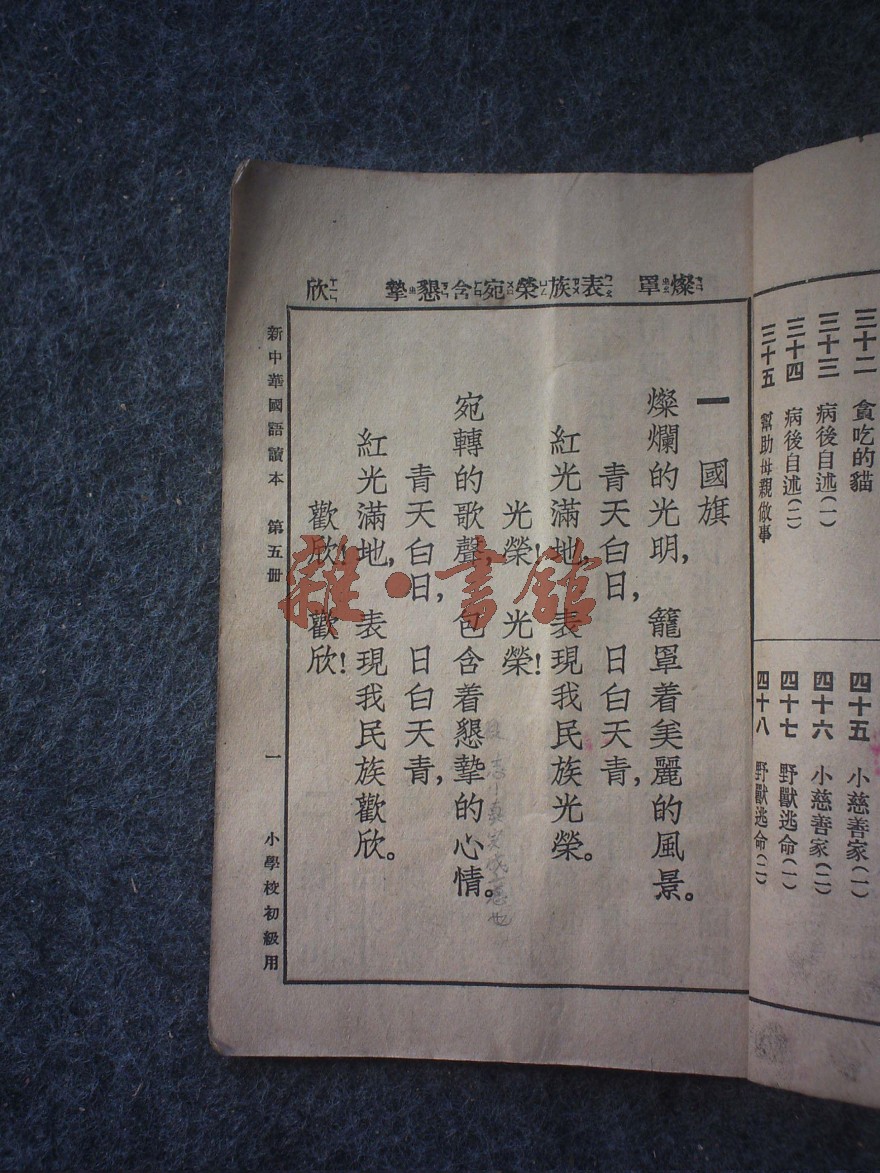 三十二　貪吃的貓
三十三　病後自述(一)
三十四　病後自述(二)
三十五　幫助母親做事
四十五　小慈善家(一)
四十六　小慈善家(二)
四十七　野獸逃命(一)
四十八　野獸逃命(二)
燦罩　表族榮宛含懇摯　欣
一　國旗
燦爛的光明，籠罩着美麗的風景。
青天白日，日白天青，
紅光滿地，表現我民族光榮。
光榮！光榮！
宛轉的歌聲，包含着懇摯的心情。
青天白日，日白天青，
紅光滿地，表現我民族歡欣。
歡欣！歡欣！
新中華國語讀本　第五册　一　小學校初級用
雜·書館